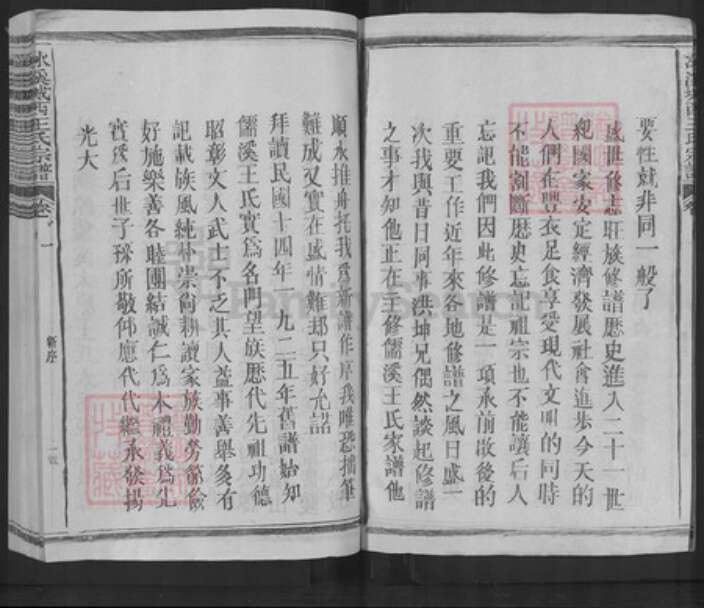 要性就非同一般了
盛世修志旺族修譜歷史進入二十一世
紀國家安定經濟發展社會進步今天的
人們在豐衣足食享受現代文明的同時
不能割斷歷史忘記祖宗也不能讓后人
忘記我們因此修譜是一項承前啟後的
重要工作近年來各地修譜之風日盛一
次我與昔日同事洪坤兄偶然談起修譜
之事才知他正在主修儒溪王氏家譜他
順水推舟托我爲新譜作序我唯恐拙筆
難成又實在盛情難却只好允諾
拜讀民國十四年一九二五年舊譜始知
儒溪王氏實爲名門望族歷代先祖功德
昭彰文人武士不乏其人益事善舉多有
記載族風純朴崇尚耕讀家族勤勞節儉
好施樂善各睦團結誠仁爲本禮義爲先
實爲后世子孫所敬仰應代代繼承發揚
光大
冰溪城西王氏宗譜
卷一
新序
FamilySearch